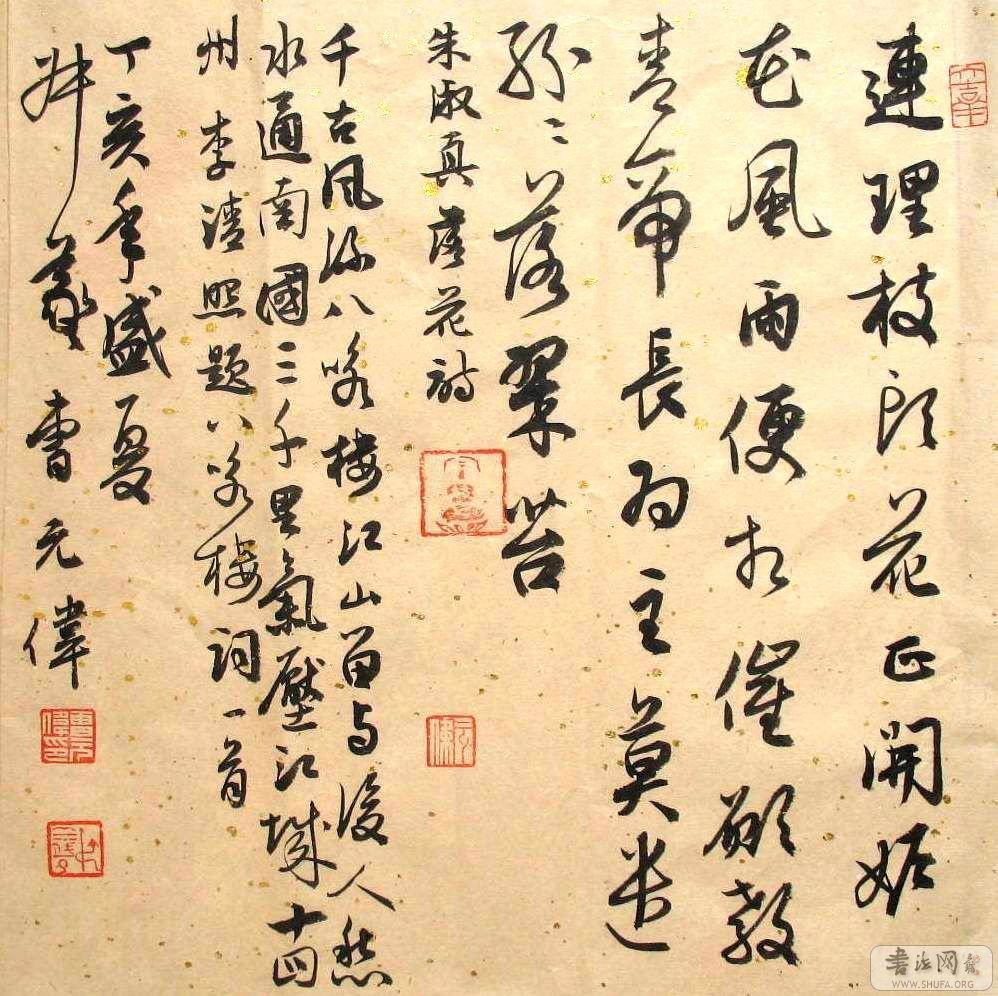 連理枝頭花正開妒
花風雨便相催願教
青帝長為主莫遣
紛〻落翠苔
朱淑真落花詩
千古風流八詠樓江山留与後人愁
水通南國三千里氣壓江城十四
州 李清照題八詠樓詞一首
丁亥年盛夏
曹元偉
书法网
WWW.SHUFA.ORG